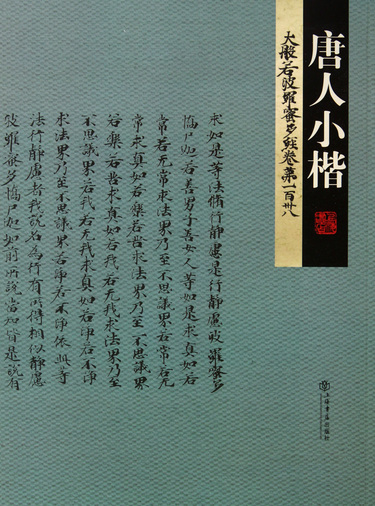 唐人小楷
大般若波羅蜜多經卷第一百卅八
求如是等法脩行靜慮是行靜慮波羅蜜多
憍尸迦若善男子善女人等如是求真如若
常若无常求法界乃至不思議界若常若无
常求真如若樂若苦求法界乃至不思議界
若樂若苦求真如若我若无我求法界乃至
不思議界若我若无我求真如若淨若不淨
求法界乃至不思議界若淨若不淨依此等
法行靜慮者我說名為行有所得相似靜慮
波羅蜜多憍尸迦如前所說當知皆是說有
上海書店出版社